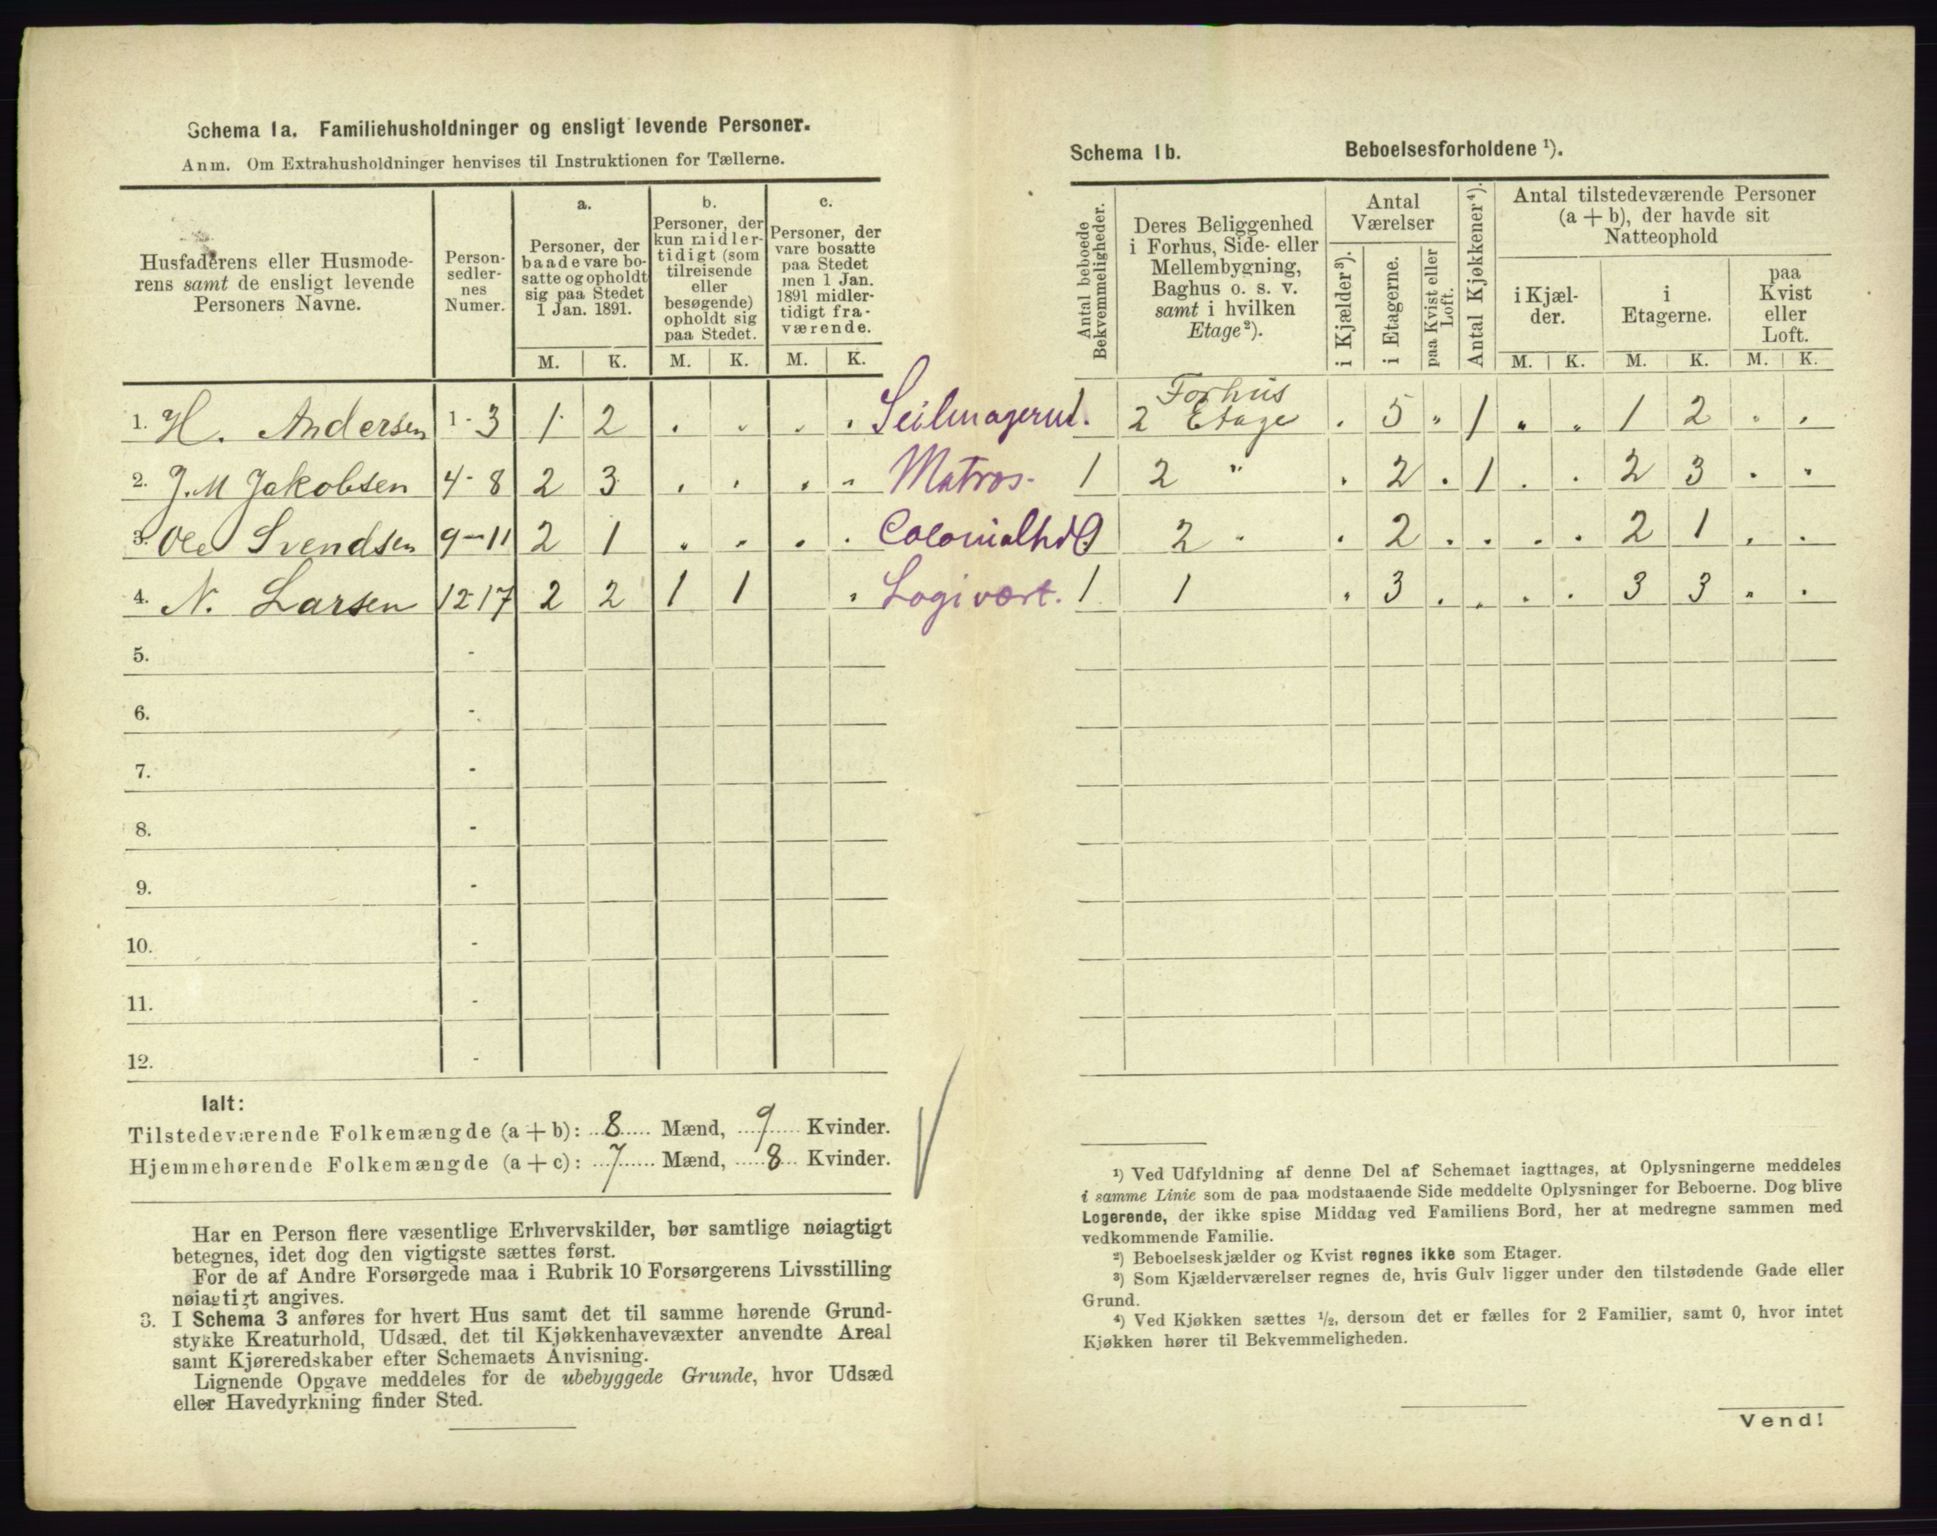 Schema 1a. Familiehusholdninger og ensligt levende Personer.
Anm. Om Extrahusholdninger henvises til Instruktionen for Tællerne.
Husfaderens eller Husmode-
rens samt de ensligt levende
Personers Navne.
Person-
sedler-
nes
Numer.
a.
Personer, der
baade vare bo-
satte og opholdt
sig paa Stedet
1 Jan. 1891.
b.
Personer, der
kun midler-
tidigt (som
tilreisende
eller
besøgende)
opholdt sig
paa Stedet.
c.
Personer, der
vare bosatte
paa Stedet
men 1 Jan.
1891 midler-
tidigt fra-
værende.
M. K. M. K. M. K.
1. H. Andersen 1-3 1 2 . . . . Seilmagerud.
2. J. M Jakobsen 4-8 2 3 . . . . Matros.
3. Ole Svendsen 9-11 2 1 . . . . Colonialhdl
4. N. Larsen 12-17 2 2 1 1 . Logivært.
5. -
6. -
7. -
8. -
9. -
10. -
11. -
12. -
Ialt:
Tilstedeværende Folkemængde (a+b): 8 Mænd, 9 Kvinder.
Hjemmehørende Folkemængde (a+c): 7 Mænd, 8 Kvinder.
Har en Person flere væsentlige Erhvervskilder, bør samtlige nøiagtigt
betegnes, idet dog den vigtigste sættes først.
For de af Andre Forsørgede maa i Rubrik 10 Forsørgerens Livsstilling
nøiagtigt angives.
3. I Schema 3 anføres for hvert Hus samt det til samme hørende Grund-
stykke Kreaturhold, Udsæd, det til Kjøkkenhavevæxter anvendte Areal
samt Kjøreredskaber efter Schemaets Anvisning.
Lignende Opgave meddeles for de ubebyggede Grunde, hvor Udsæd
eller Havedyrkning finder Sted.
Schema 1b. Beboelsesforholdene ¹).
Antal beboede
Bekvemmeligheder.
Deres Beliggenhed
i Forhus, Side- eller
Mellembygning,
Baghus o. s. v.
samt i hvilken
Etage²).
Antal
Værelser
i Kjælder³).
i Etagerne.
paa Kvist eller
Loft.
Antal Kjøkkener⁴).
Antal tilstedeværende Personer
(a+b), der havde sit
Natteophold
i Kjæl-
der.
i
Etagerne.
paa
Kvist
eller
Loft.
M. K. M. K. M. K.
Forhus
1. 2 Etage . 5 " 1 " " 1 2 . .
1 2 " . 2 . 1 . . 2 3 . .
2 " . 2 . . . . 2 1 . .
1 1 . 3 . . . . 3 3 . .
¹) Ved Udfyldning af denne Del af Schemaet iagttages, at Oplysningerne meddeles
i samme Linie som de paa modstaaende Side meddelte Oplysninger for Beboerne. Dog blive
Logerende, der ikke spise Middag ved Familiens Bord, her at medregne sammen med
vedkommende Familie.
²) Beboelseskjælder og Kvist regnes ikke som Etager.
³) Som Kjælderværelser regnes de, hvis Gulv ligger under den tilstødende Gade eller
Grund.
⁴) Ved Kjøkken sættes ½, dersom det er fælles for 2 Familier, samt 0, hvor intet
Kjøkken hører til Bekvemmeligheden.
Vend!